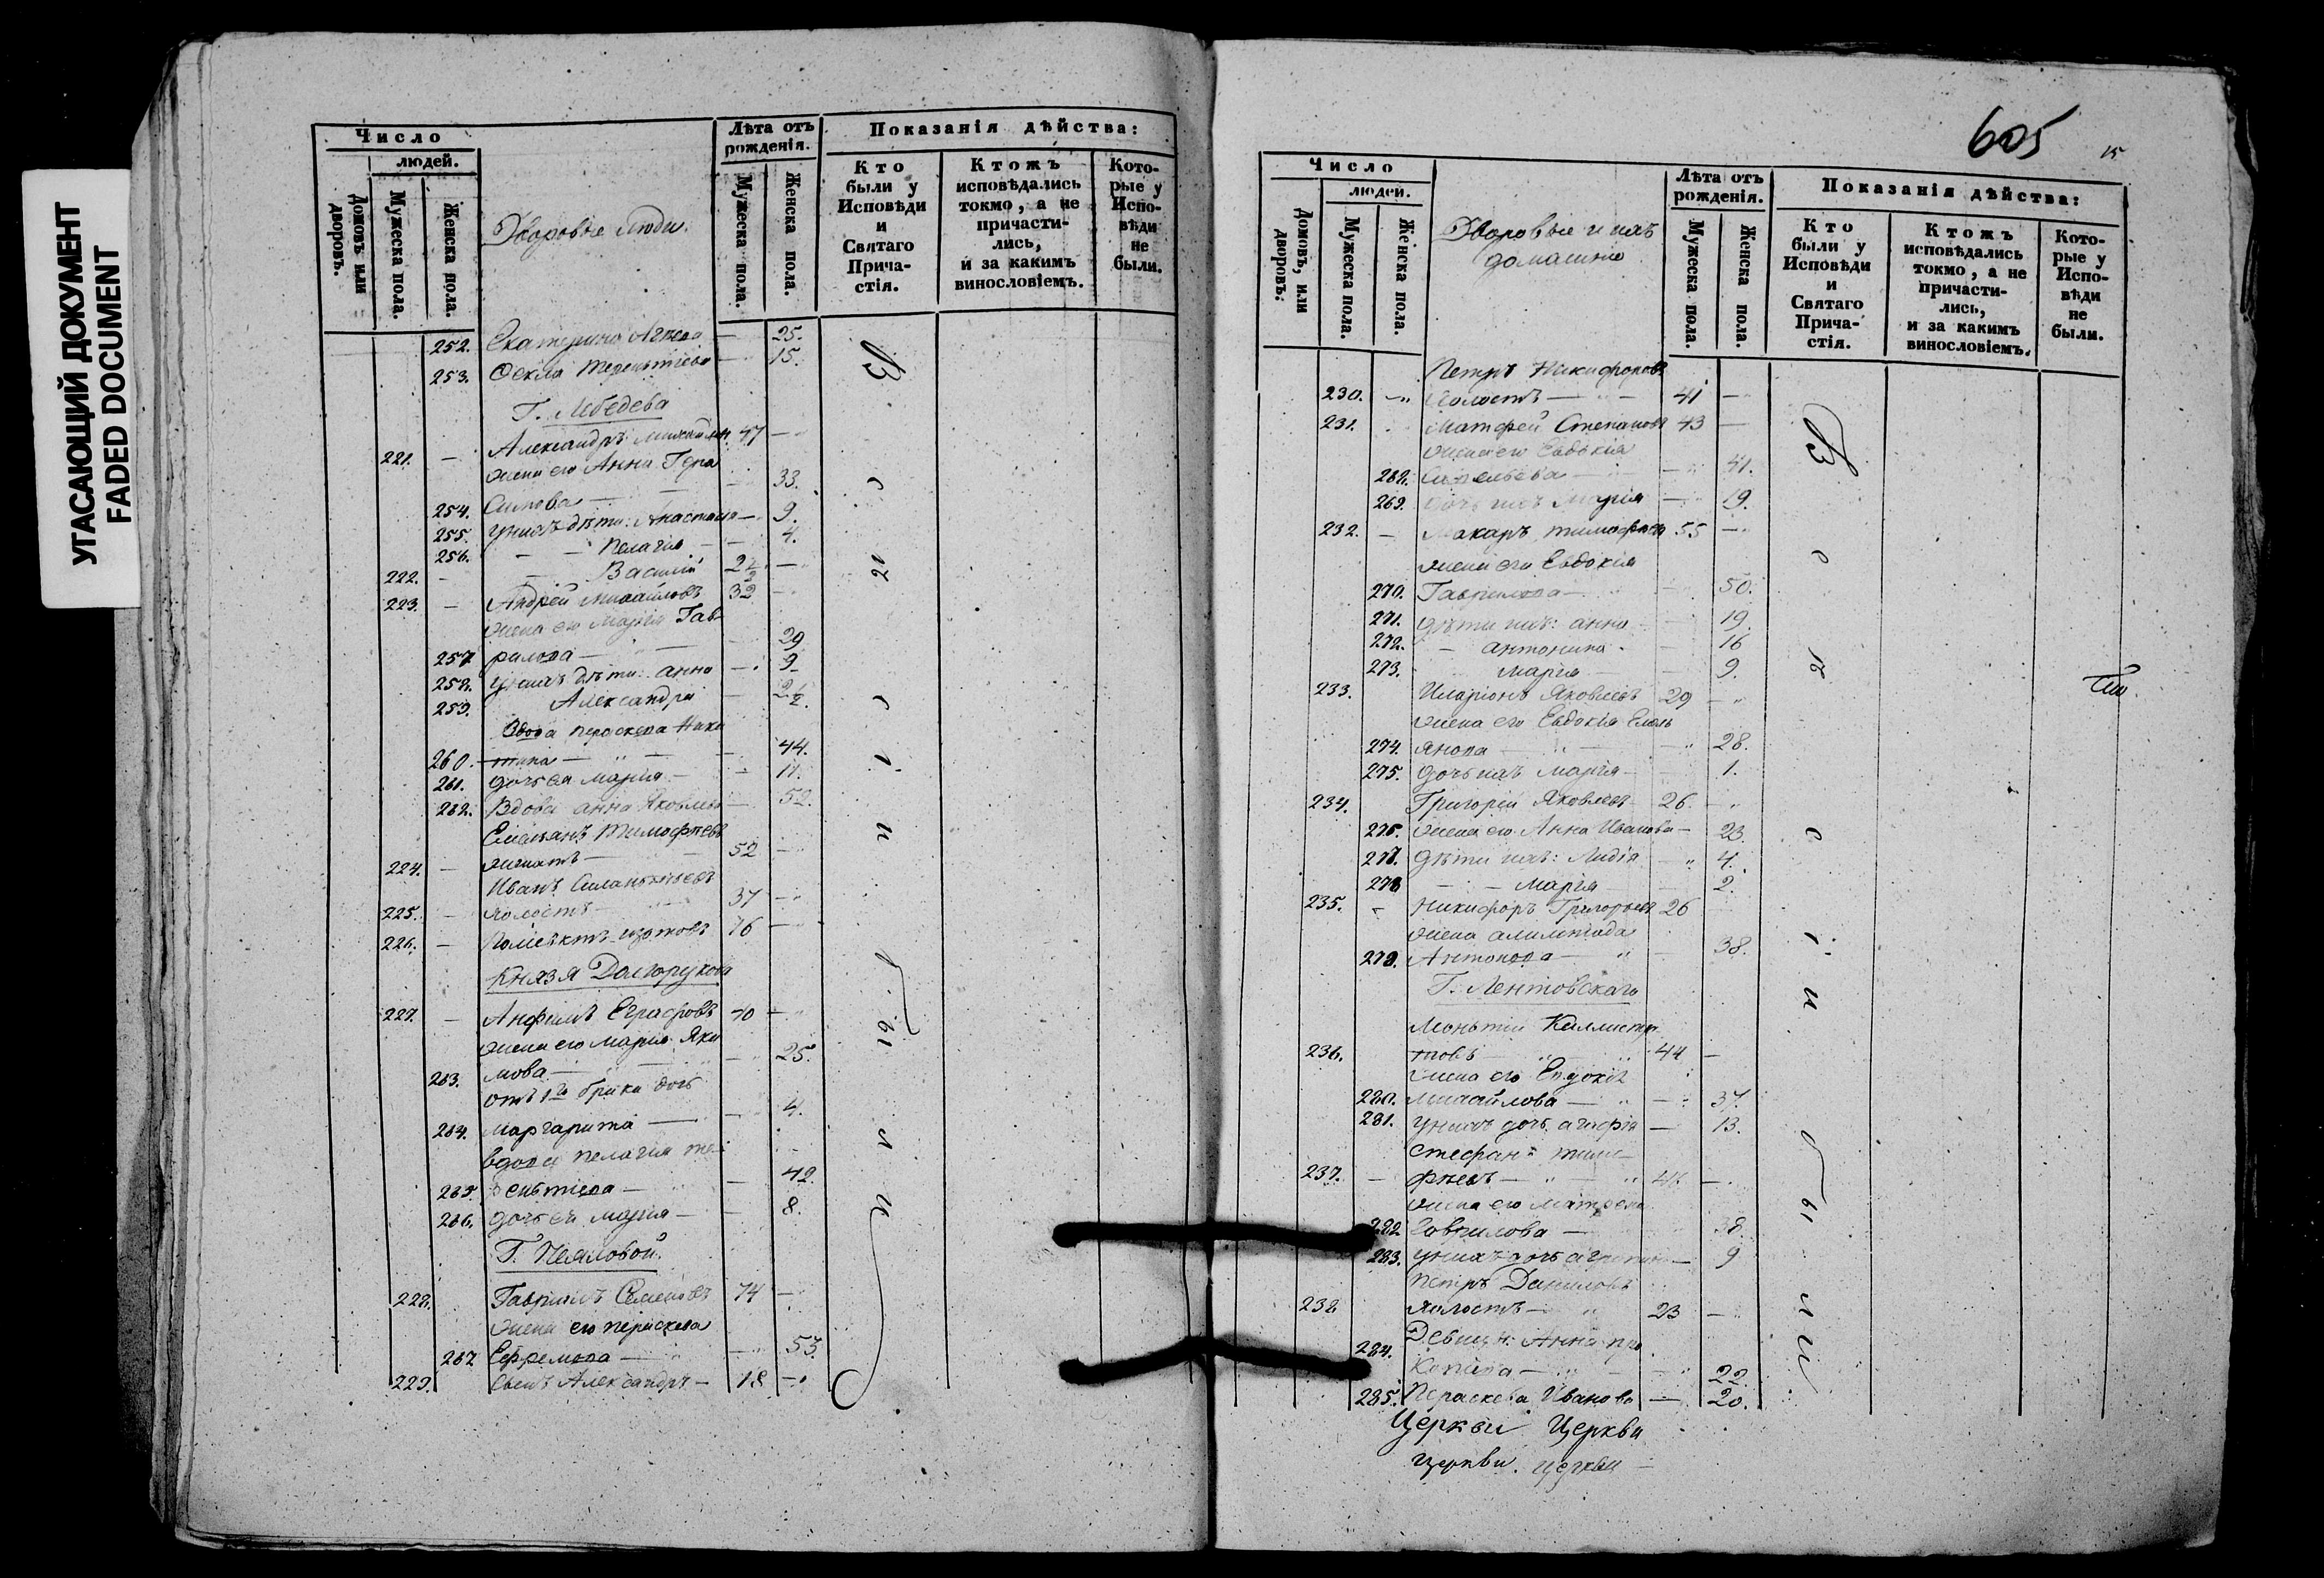 УГАСАЮЩИЙ ДОКУМЕНТ
FADED DOCUMENT
Число
людей.
Домовъ или дворовъ.
Мужеска пола.
Женска пола.
Дворовые люди.
Лѣта отъ рожденія.
Мужеска пола.
Женска пола.
Показанія дѣйства:
Кто были у Исповѣди и Святаго Прича-стія.
Ктожъ исповѣдались токмо, а не причасти-лись, и за какимъ винословіемъ.
Кото-рые у Испо-вѣди не были.
252. Екатерина — 25.
253. Фекла Терентіева — 15.
Г. Лебедева
221. — Александръ Михайлов. 47 —
жена его Анна Гера
254. Симова — — 33.
255. у нихъ дѣти: Анастасія — 9.
256. — — Пелагія — 4.
222. — — Василій 2 1/2 —
223. — Андрей Михайловъ 32 —
жена его Марія Гав
257 рилова — — 29
258. у нихъ дѣти: Анна — 9
259. Александра — 2 1/2.
Вдова Параскева Ники
260. тина — — 44.
261. дочь ея Марія — — 11.
262. Вдова Анна Яковлева — 52.
Емельянъ Тимофѣевъ
224. — женатъ — 52 —
Иванъ
225. — холостъ — 37 —
226. — 76 —
Князя Долгорукова
227. — Анфимъ Евграфовъ 40 —
жена его Марія Яки
263. мова — — 25.
отъ 1го брака дочь
264. Маргарита — — 4.
вдова Пелагія Те
265. рентіева — — 42.
266. дочь ея Марія — — 8.
Г.
228. Гавріилъ Семеновъ 74 —
жена его Параскева
267 Ефремова — — 53.
229. сынъ Александръ — 18 —
В с ѣ с і и б ы л и
605
15
Число
людей.
Домовъ, или дворовъ.
Мужеска пола.
Женска пола.
Дворовые и ихъ
домашніе
Лѣта отъ рожденія.
Мужеска пола.
Женска пола.
Показанія дѣйства:
Кто были у Исповѣди и Святаго Прича-стія.
Ктожъ исповѣдались токмо, а не причасти-лись, и за какимъ винословіемъ.
Кото-рые у Испо-вѣди не были.
Петръ Никифоровъ
230. — холостъ — — 41 —
231. Матфей Степановъ 43 —
жена его Евдокія
268. Савельева — — 41.
269. дочь ихъ Марія — 19.
232. — Макаръ Тимофѣевъ 55 —
жена его Евдокія
270. Гаврилова — — 50.
271. дѣти ихъ: Анна — 19.
272. — Антонина — 16
273. Марія — 9.
233. Иларіонъ Яковлевъ 29 —
жена его Евдокія Емель
274. янова — — 28.
275. дочь ихъ Марія — 1.
234. Григорій Яковлевъ 26. —
276. жена его Анна Иванова — 23.
277. дѣти ихъ: Лидія — 4.
278 — — Марія — 2.
235. — Никифоръ Григорьевъ 26
жена
279. Антонова — — 38.
Г. Лентовскаго
236. товъ — 44 —
жена его Евдокія
280. Михайлова — — 37.
281. у нихъ дочь Агафія — 13.
Стефанъ Тимо
237. — фѣевъ — 46 —
жена его Матрена
282 Гаврилова — 38.
283. у нихъ дочь — 9
Петръ Даниловъ
238 холостъ — 23 —
Девица: Анна Про
284. копіева — — 22.
285. Параскева Иванова — 20.
В с ѣ с і и б ы л и
Церкви Церкви
церкви. церкви —